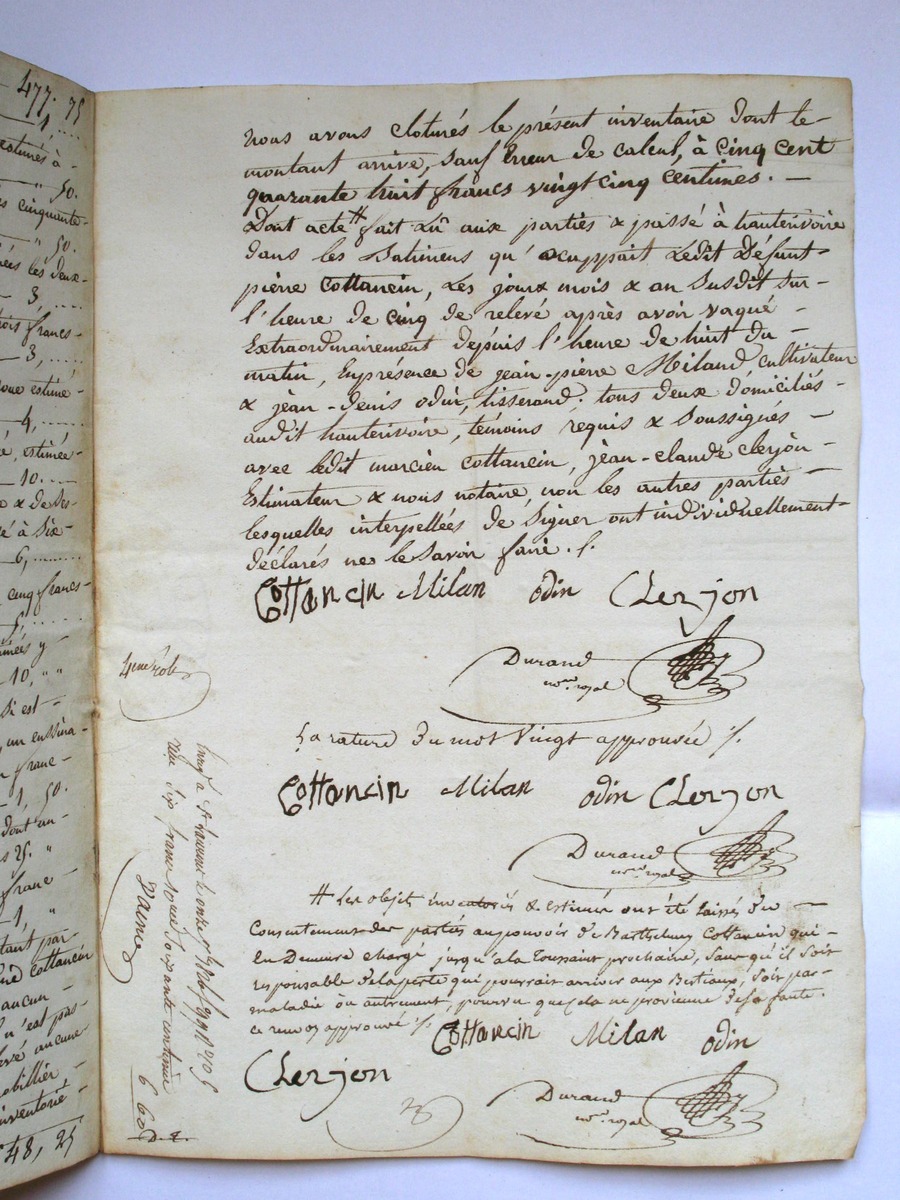 477. 75
1, ....
estimés à -
" 50.
s cinquante-
" 50.
les deux-
3, ....
trois francs-
3, ....
estimé-
4, ....
estimée-
10. ....
& de ses-
à six-
6, ....
cinq francs-
5, ....
y-
10, " "
si est-
franc-
1, 50.
dont un-
25. "
franc-
1, "
tant par-
Cottancin
aucun-
n'est pas-
aucune
mobilier-
inventorié-
48, 25
nous avons cloturés le présent inventaire dont le-
montant arrive, sauf Erreur de calcul, à Cinq cent
quarante huit francs vingt cinq centimes. —
Dont acte # fait Lû aux parties & passé à hauterivoire
dans les Batimens qu'occuppait Ledit Défunt-
pierre Cottancin, Les jours mois & an Susdit sur-
l'heure de cinq de relevé après avoir vaqué-
Extraordinairement depuis l'heure de huit du-
matin, En presence de jean-pierre Miland, cultivateur
& jean-denis odin, tisserand; tous deux domiciliés-
audit hauterivoire, témoins requis & Soussignés-
avec ledit marcien Cottancin, jean-claude clerjon-
Estimateur & nous notaire, non les autres parties-
lesquelles interpellées de Signer ont individuellement-
déclarés ne le Savoir faire ./.
Cottancin Milan odin Clerjon
Durand
no.re royal
4eme role
La rature du mot Vingt approuvée ./.
Cottancin Milan odin Clerjon
Durand
no.re royal
# Les objets inventoriés & Estimés ont été laissés du-
Consentement des parties au pouvoir de Barthelemy Cottancin qui-
En Demeure chargé jusqu'à la Toussaint prochaine, Sauf qu'il Soit
responsable de la perte qui pourrait arriver aux Bestiaux, Soit par-
maladie ou autrement, pourvu que cela ne provienne de sa faute.
ce renvoy approuvé ./.
Cottancin Milan odin
Clerjon
Durand
no.re royal
Enreg. à St Laurent le onze
Reçu Six francs Soixante centimes
6 60